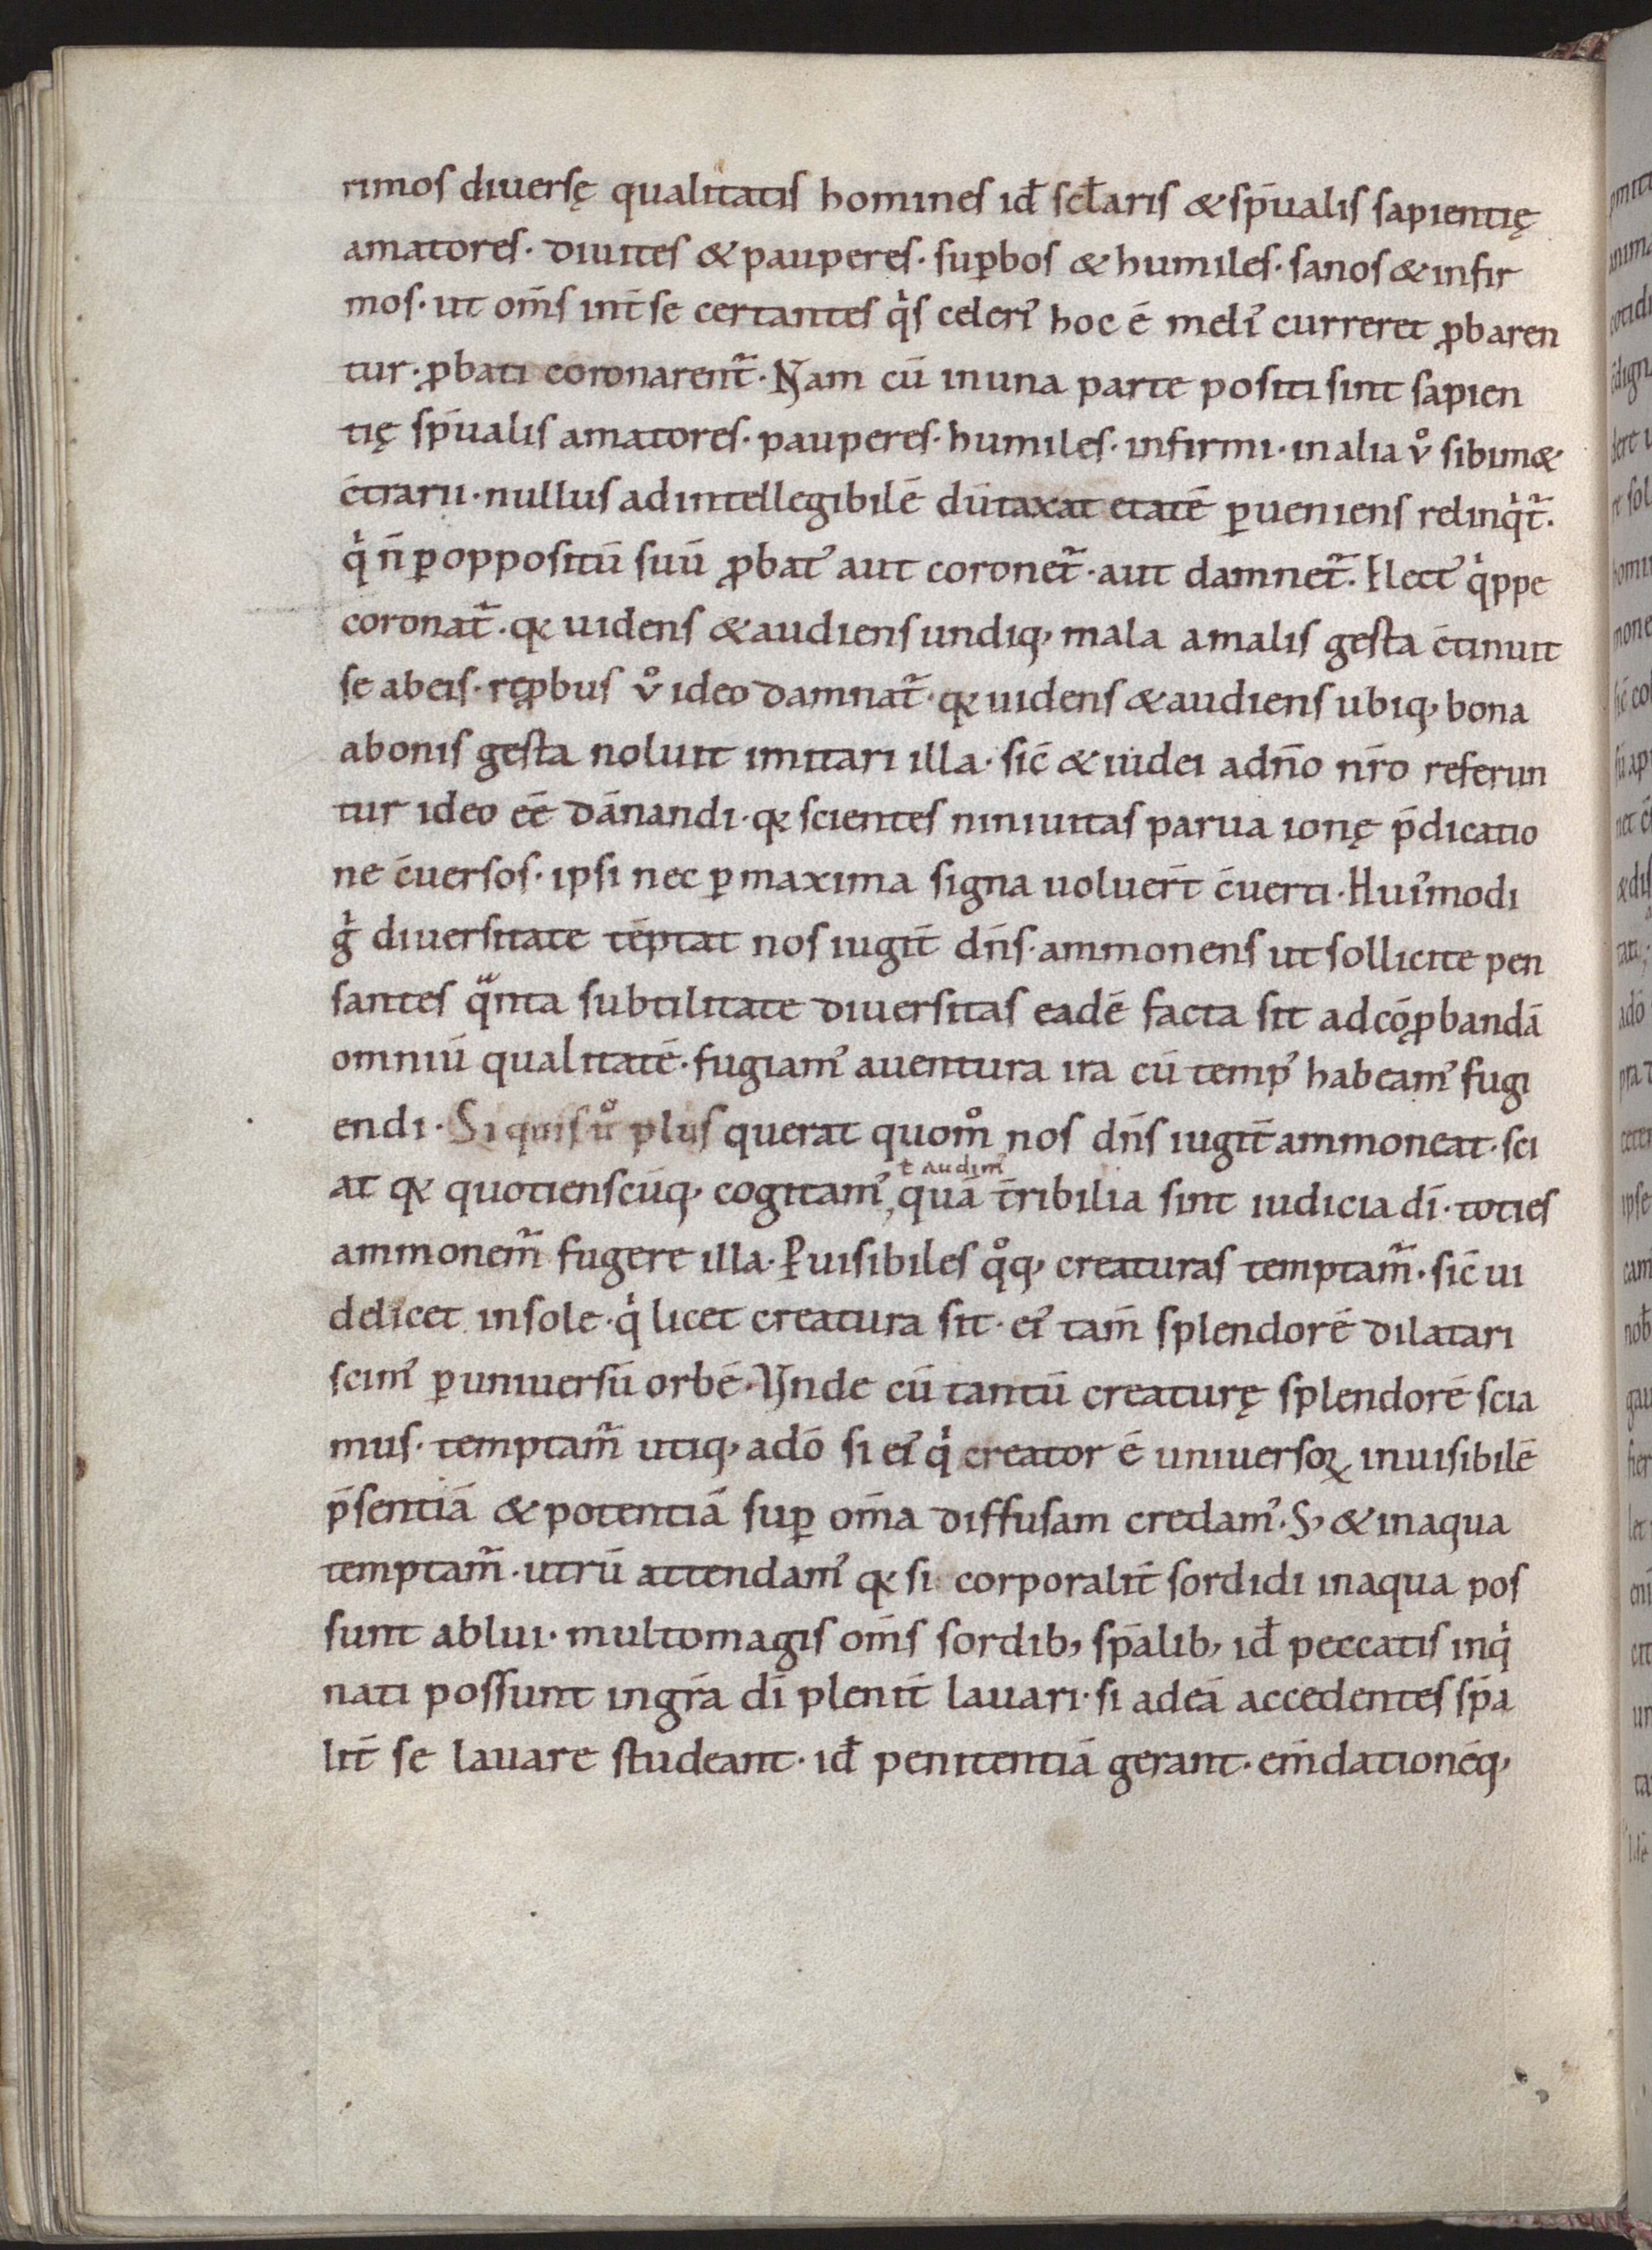 rimos diuersę qualitatis homines id̄ sc̄laris & sp̄ualis sapientię
amatores· diuites & pauperes· suꝑbos & humiles· sanos & infir
mos· ut om̄s int̄ se certantes qͥs celeri᾽ hoc ē meli᾽ curreret ꝓbaren
tur· ꝓbati coronarent᷑· Nam cū in una parte positi sint sapien
tię sp̄ualis amatores· pauperes· humiles· infirmi· in alia vͦ sibim&
c̄trarii· nullus ad intellegibilē dūtaxat etatē ꝑueniens relinqͥt᷑·
qͥ n̄ ꝑ oppositū suū ꝓbat᾽ aut coronet᷑· aut damnet᷑· Elect᾽ qͥppe
coronat᷑· qꝛ uidens & audiens undiq; mala a malis gesta c̄tinuit
se ab eis· reꝓbus vͦ ideo damnat᷑· qꝛ uidens & audiens ubiq; bona
a bonis gesta noluit imitari illa· sic̄ & iudei a dn̄o nr̄o referun
tur ideo eē dānandi· qꝛ scientes niniuitas parua ionę p̄dicatio
ne c̄uersos· ipsi nec ꝑ maxima signa uoluer̄t c̄uerti· Hui᾽modi
gͥ diuersitate tēptat nos iugit̄ dn̄s· ammonens ut sollicite pen
santes qᷓnta subtilitate diuersitas eadē facta sit ad cōꝓbandā
omniū qualitatē· fugiam᾽ a uentura ira cū temp᾽ habeam᾽ fugi
endi· Si quis ůͦ plus querat quom̊ nos dn̄s iugit̄ ammoneat· sci
at qꝛ quotienscūq; cogitam᾽ ł audim᾽ quā t̄ribilia sint iudicia dī· toties
ammonem᷑ fugere illa· Ꝑ uisibiles qͦq; creaturas temptam᷑· sic̄ ui
delicet in sole· qͥ licet creatura sit· ei᾽ tam̄ splendorē dilatari
scim᾽ ꝑ uniuersū orbē· Vnde cū tantū creaturę splendorē scia
mus· temptam᷑ utiq; a dō si ei᾽ qͥ creator ē uniuersoꝝ inuisibilē
p̄sentiā & potentiā suꝑ om̄a diffusam credam᾽· S; & in aqua
temptam᷑· utrū attendam᾽ qꝛ si corporalit̄ sordidi in aqua pos
sunt ablui· multo magis om̄s sordib; sp̄alib; id̄ peccatis inqͥ
nati possunt in gr̄a dī plenit̄ lauari· si ad eā accedentes sp̄a
lit̄ se lauare studeant· id̄ penitentiā gerant· em̄dationēq;